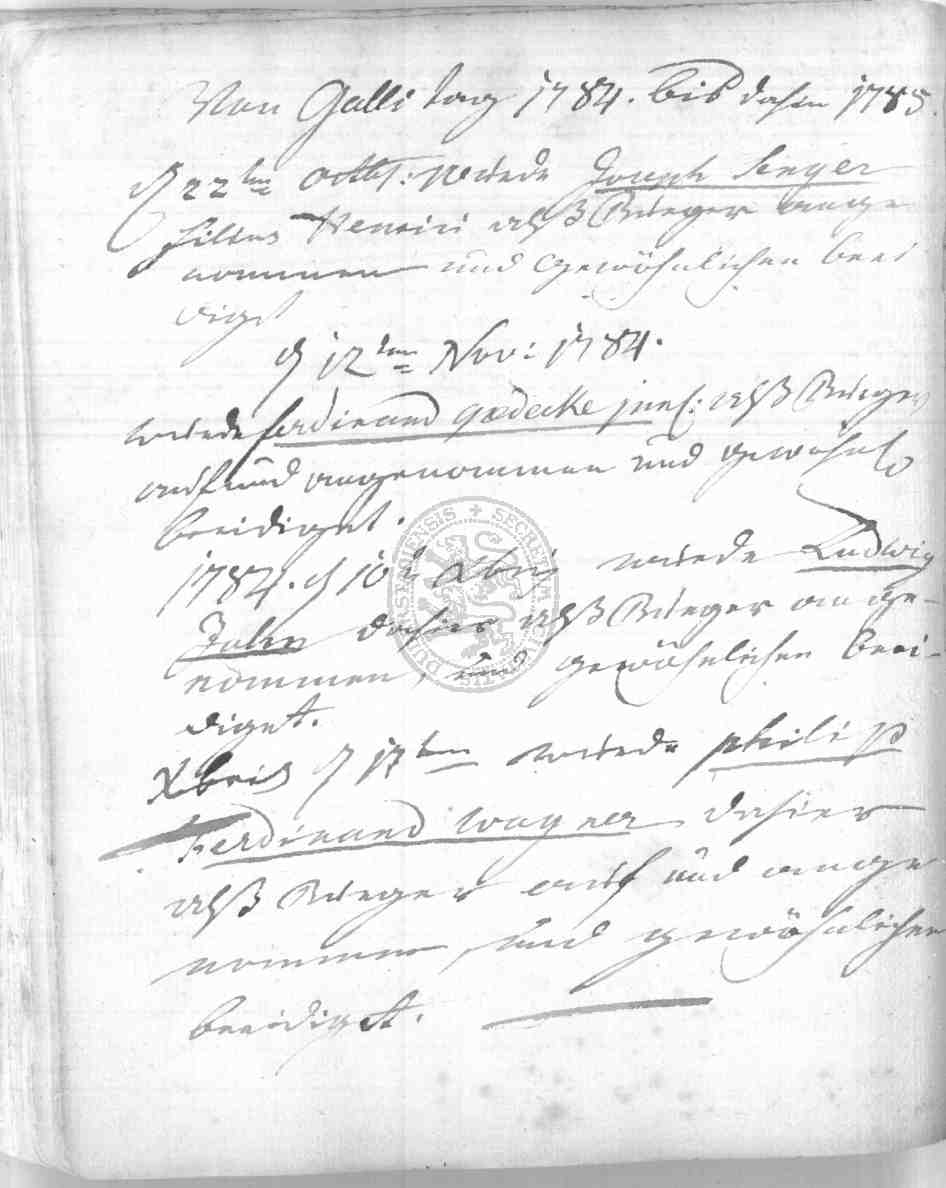 Von Galli tag 1784. bis dahin 1785.
d 22ten octbr: wurde Joseph
filius Henrici alß Bürger ange
nommen und gewöhnlichen beei
diget
d 12ten Nov: 1784.
wurde ferdinand gædecke jun: alß Bürger
auf und angenommen und gewöhnl
beeidiget.
1784. d 10t Xbris wurde Ludwig
dahier alß Bürger ange-
nommen, und gewöhnlichen beei-
diget.
Xbris d 17ten wurde philip
Ferdinand wagner dahier
alß Bürger auf und ange
nommen, und gewöhnlichen
beeidiget.
SECRETUM